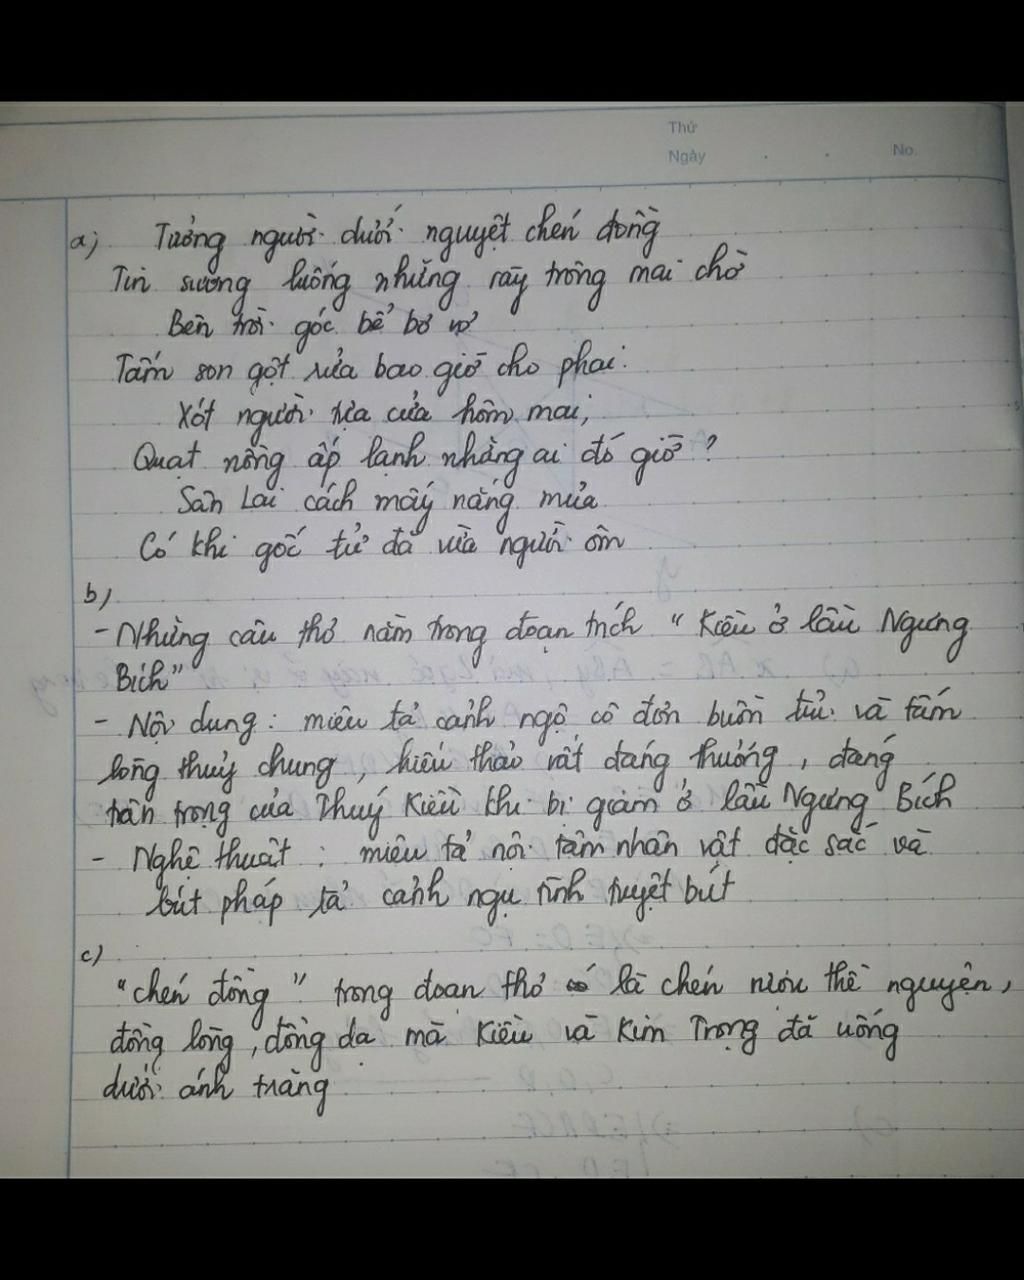 Thứ
Ngày . . No.
a) Tưởng người dưới nguyệt chén đồng
Tin sương luống những rày trông mai chờ
Bên trời góc bể bơ vơ
Tấm son gột rửa bao giờ cho phai.
Xót người tựa cửa hôm mai,
Quạt nồng ấp lạnh những ai đó giờ?
Sân Lai cách mấy nắng mưa
Có khi gốc tử đã vừa người ôm
b)
- Những câu thơ nằm trong đoạn trích "Kiều ở lầu Ngưng
Bích"
- Nội dung: miêu tả cảnh ngộ cô đơn buồn tủi và tấm
lòng thuỷ chung, hiếu thảo rất đáng thương, đáng
trân trọng của Thuý Kiều khi bị giam ở lầu Ngưng Bích
- Nghệ thuật: miêu tả nội tâm nhân vật đặc sắc và
bút pháp tả cảnh ngụ tình tuyệt bút
c)
"chén đồng" trong đoạn thơ là chén rượu thề nguyện,
đồng lòng, đồng dạ mà Kiều và Kim Trọng đã uống
dưới ánh trăng